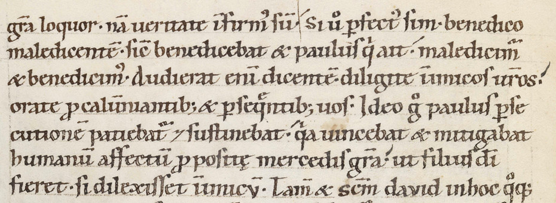 gr̄a loquor· nā ueritate īfirmꝰ sū· Si ů ꝑfectꝰ sim· benedico
maledicentē· sic̄ benedicebat & paulus q̇ ait· maledicim̄
& benedicimꝰ· Audierat eni dicentē· diligite inimicos ur̄os·
orate ꝓ calūniantib; & ꝑseq̄ntib; uos· Ideo g̊ paulus ꝑse
cutionē patiebat̄ ⁊ sustinebat· q̇a uincebat & mitigabat
humanū affectū ꝓ ꝓpositę mercedis gr̄a· ut filius dī
fieret· si dilexisset inimicū· Iam & sc̄m dauid in hoc q̊q;